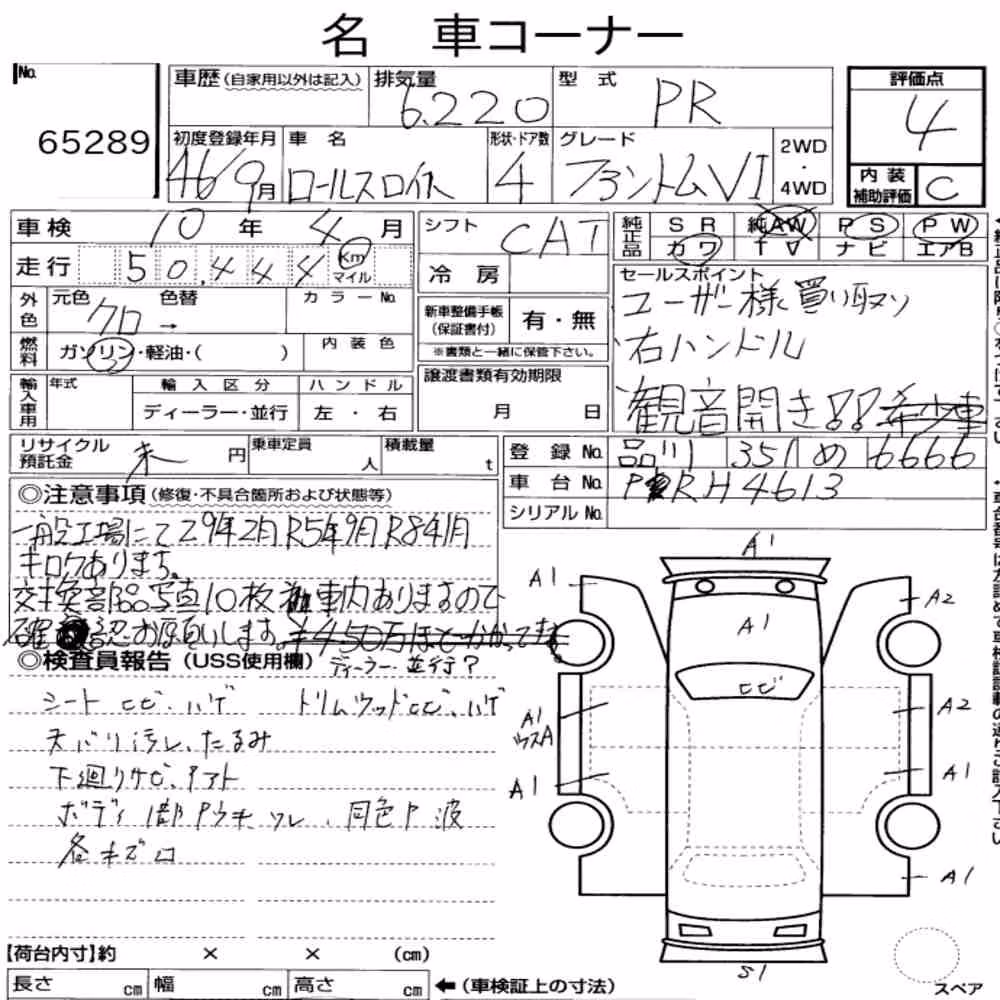 名 車コーナー
No. 65289
車歴(自家用以外は記入) 排気量 6.220 型式 PR
評価点 4
初度登録年月 46/9月 車名 ロールスロイス 形状・ドア数 4 グレード ファントムVI 2WD・4WD
内装補助評価 C
車検 10年 4月 シフト CAT
純正品 SR 純AW PS PW
カワ TV ナビ エアB
走行 50,444 Km マイル
冷房
セールスポイント
ユーザー様買い取り
右ハンドル
観音開き!! 希少車
外色 元色 クロ 色替 → カラーNo.
新車整備手帳(保証書付) 有・無
※書類と一緒に保管下さい。
燃料 ガソリン・軽油・( ) 内装色
譲渡書類有効期限 月 日
輸入車用 年式 輸入区分 ハンドル
ディーラー・並行 左・右
リサイクル預託金 未 円 乗車定員 人 積載量 t
登録No. 品川 351 め 6666
車台No. PRH4613
シリアルNo.
◎注意事項(修復・不具合箇所および状態等)
一般工場にて29年2月R5年9月R8年1月
キロクあります。
交換部品写真10枚 車内ありますので
確認お願いします。¥450万ほどかかってます
◎検査員報告(USS使用欄) ディーラー・並行?
シート ヒビ、ハゲ トリムウッドヒビ、ハゲ
天バリ汚レ、たるみ
下廻りサビ、
ボディ1部Pウキ、ワレ、同色P波
各キズ凹
A1
A1
A2
A1
ヒビ
A1
ウスA
A2
A1
A1
A1
S1
スペア
【荷台内寸】約 × × (cm)
長さ cm 幅 cm 高さ cm ←(車検証上の寸法)